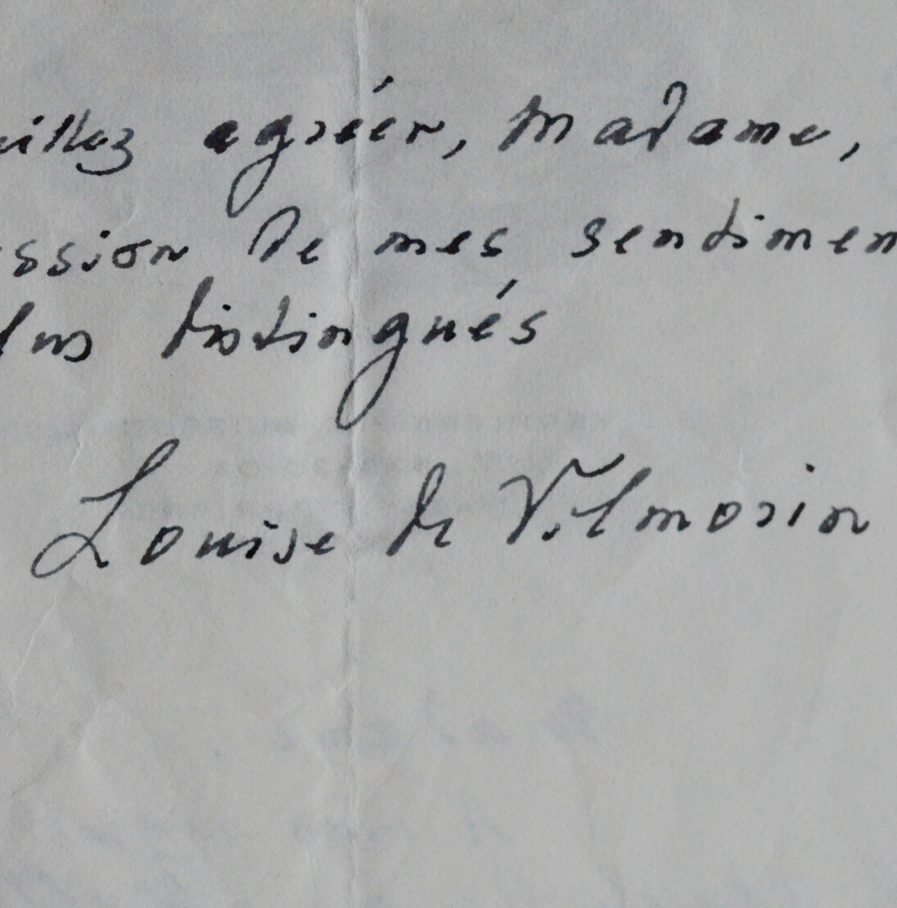 uillez agréer, Madame,
ession de mes sentimen
lus distingués
Louise de Vilmorin